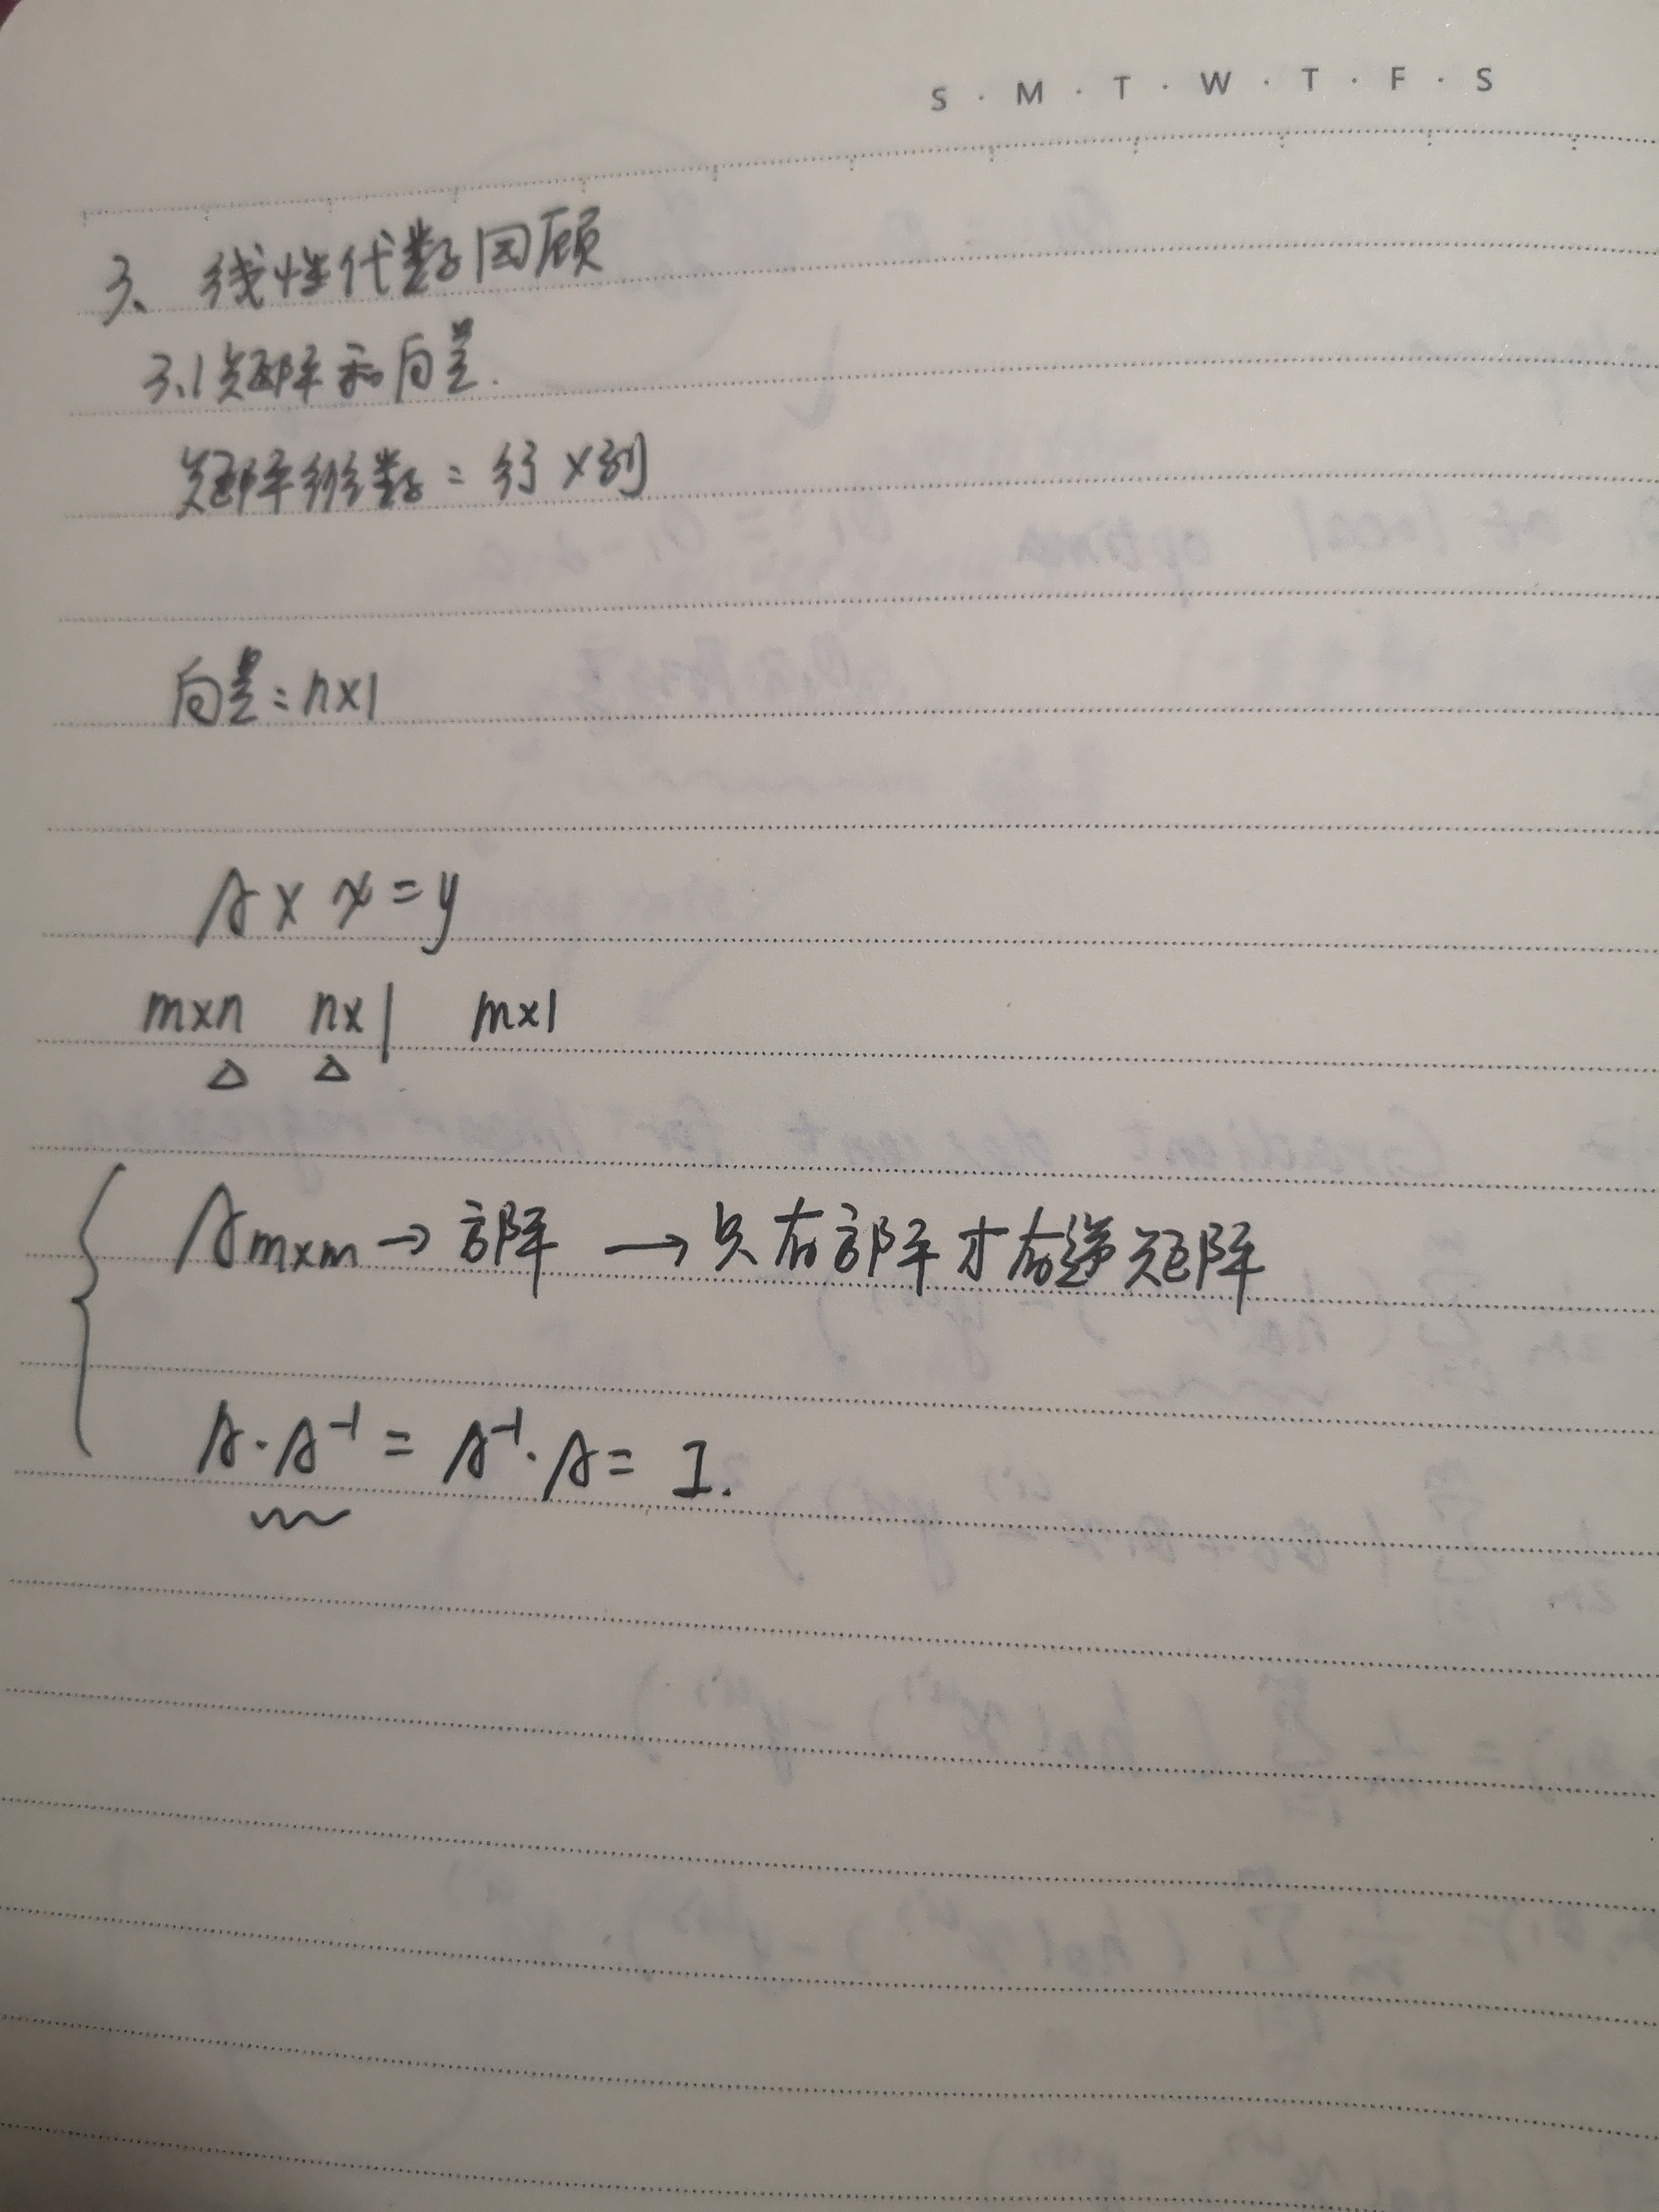 S · M · T · W · T · F · S
3、线性代数回顾
3.1 矩阵和向量.
矩阵维数 = 行×列
向量 = n×1
A × x = y
m×n n×1 m×1
△ △
Am×m → 方阵 → 只有方阵才有逆矩阵
A · A⁻¹ = A⁻¹ · A = I.